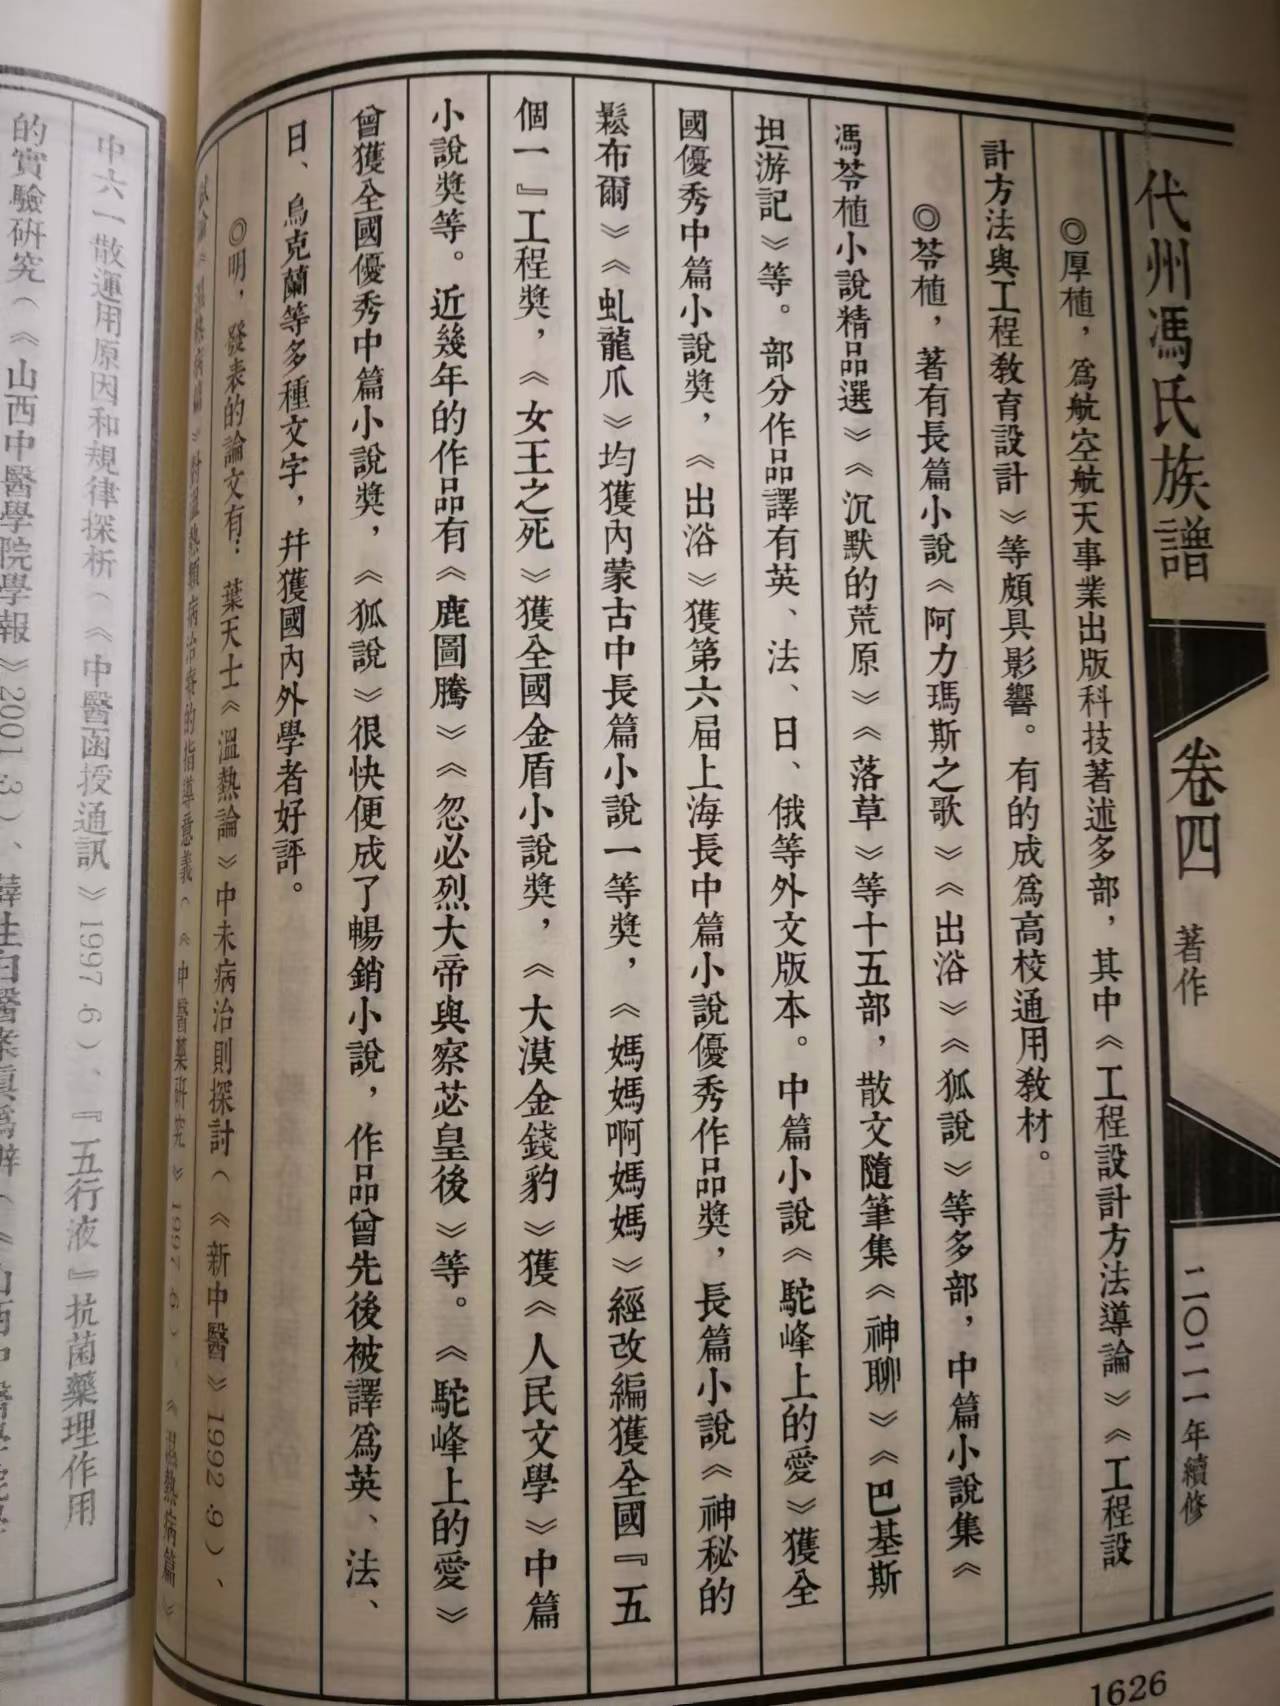 代州馮氏族譜 卷四 著作 二〇二一年續修
◎厚植，爲航空航天事業出版科技著述多部，其中《工程設計方法導論》《工程設
計方法與工程教育設計》等頗具影響。有的成爲高校通用教材。
◎苓植，著有長篇小說《阿力瑪斯之歌》《出浴》《狐說》等多部，中篇小說集《
馮苓植小說精品選》《沉默的荒原》《落草》等十五部，散文隨筆集《神聊》《巴基斯
坦游記》等。部分作品譯有英、法、日、俄等外文版本。中篇小說《駝峰上的愛》獲全
國優秀中篇小說獎，《出浴》獲第六届上海長中篇小說優秀作品獎，長篇小說《神秘的
鬆布爾》《虬龍爪》均獲內蒙古中長篇小說一等獎，《媽媽啊媽媽》經改編獲全國『五
個一』工程獎，《女王之死》獲全國金盾小說獎，《大漠金錢豹》獲《人民文學》中篇
小說獎等。近幾年的作品有《鹿圖騰》《忽必烈大帝與察苾皇後》等。《駝峰上的愛》
曾獲全國優秀中篇小說獎，《狐說》很快便成了暢銷小說，作品曾先後被譯爲英、法、
日、烏克蘭等多種文字，幷獲國內外學者好評。
◎明，發表的論文有：葉天士《溫熱論》中未病治則探討（《新中醫》1992.9）、
試論《濕熱病篇》對溫熱類病治療的指導意義（《中醫藥研究》1997.6）、《濕熱病篇》
中六一散運用原因和規律探析（《中醫函授通訊》1997 6）、『五行液』抗菌藥理作用
的實驗研究（《山西中醫學院學報》2001 3）、薛生白醫案真偽辨（《山西中醫學院學
1626